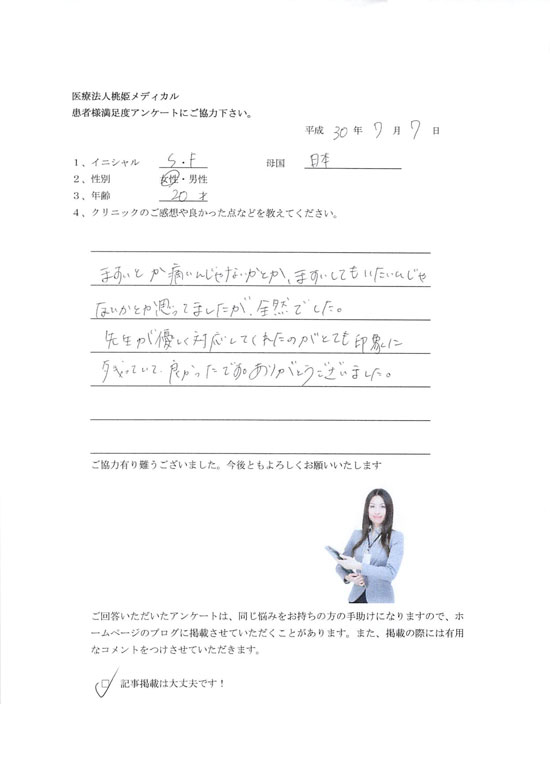 医療法人桃姫メディカル
患者様満足度アンケートにご協力下さい。
平成 30 年 7 月 7 日
1、イニシャル S・F 母国 日本
2、性別 女性・男性
3、年齢 20 才
4、クリニックのご感想や良かった点などを教えてください。
ますいとか痛いんじゃないかとか、ますいしてもいたいんじゃ
ないかとか思ってましたが、全然でした。
先生が優しく対応してくれたのがとても印象に
残っていて、良かったです。ありがとうございました。
ご協力有り難うございました。今後ともよろしくお願いいたします
ご回答いただいたアンケートは、同じ悩みをお持ちの方の手助けになりますので、ホ
ームページのブログに掲載させていただくことがあります。また、掲載の際には有用
なコメントをつけさせていただきます。
□ 記事掲載は大丈夫です！